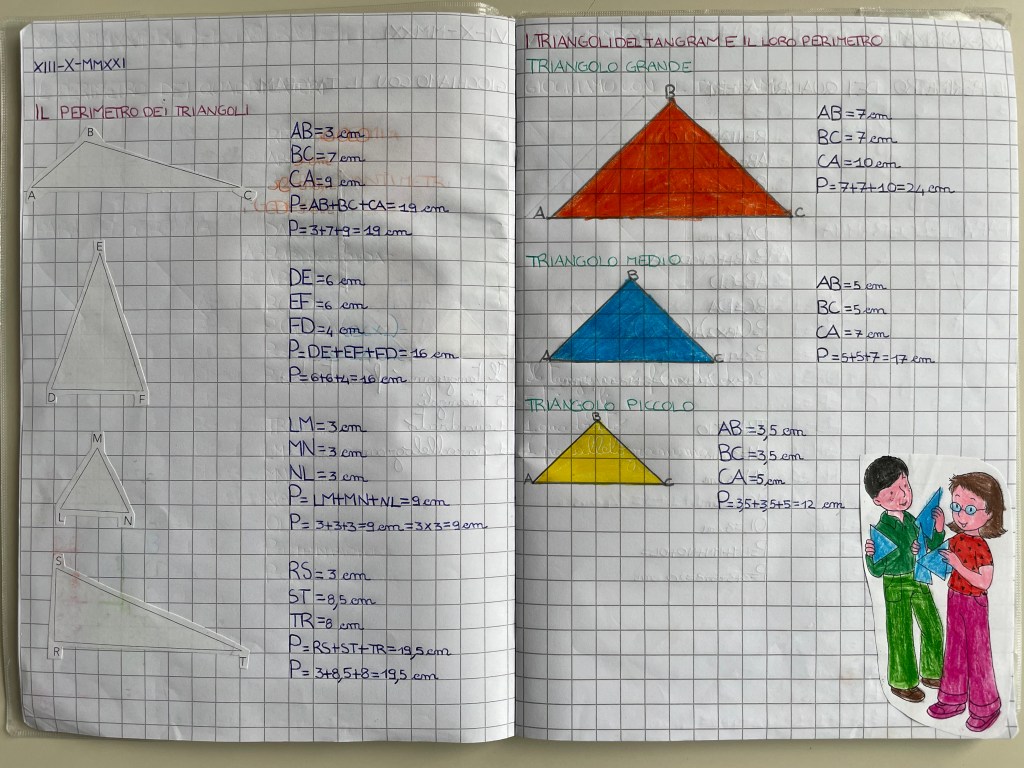 XIII-X-MMXXI
IL PERIMETRO DEI TRIANGOLI
B
A
C
AB=3 cm
BC=7 cm
CA=9 cm
P=AB+BC+CA=19 cm
P=3+7+9=19 cm
E
D
F
DE=6 cm
EF=6 cm
FD=4 cm
P=DE+EF+FD=16 cm
P=6+6+4=16 cm
M
L
N
LM=3 cm
MN=3 cm
NL=3 cm
P=LM+MN+NL=9 cm
P=3+3+3=9 cm=3x3=9 cm
S
R
T
RS=3 cm
ST=8,5 cm
TR=8 cm
P=RS+ST+TR=19,5 cm
P=3+8,5+8=19,5 cm
I TRIANGOLI DEL TANGRAM E IL LORO PERIMETRO
TRIANGOLO GRANDE
B
A
C
AB=7 cm
BC=7 cm
CA=10 cm
P=7+7+10=24 cm
TRIANGOLO MEDIO
B
A
C
AB=5 cm
BC=5 cm
CA=7 cm
P=5+5+7=17 cm
TRIANGOLO PICCOLO
B
A
C
AB=3,5 cm
BC=3,5 cm
CA=5 cm
P=3,5+3,5+5=12 cm